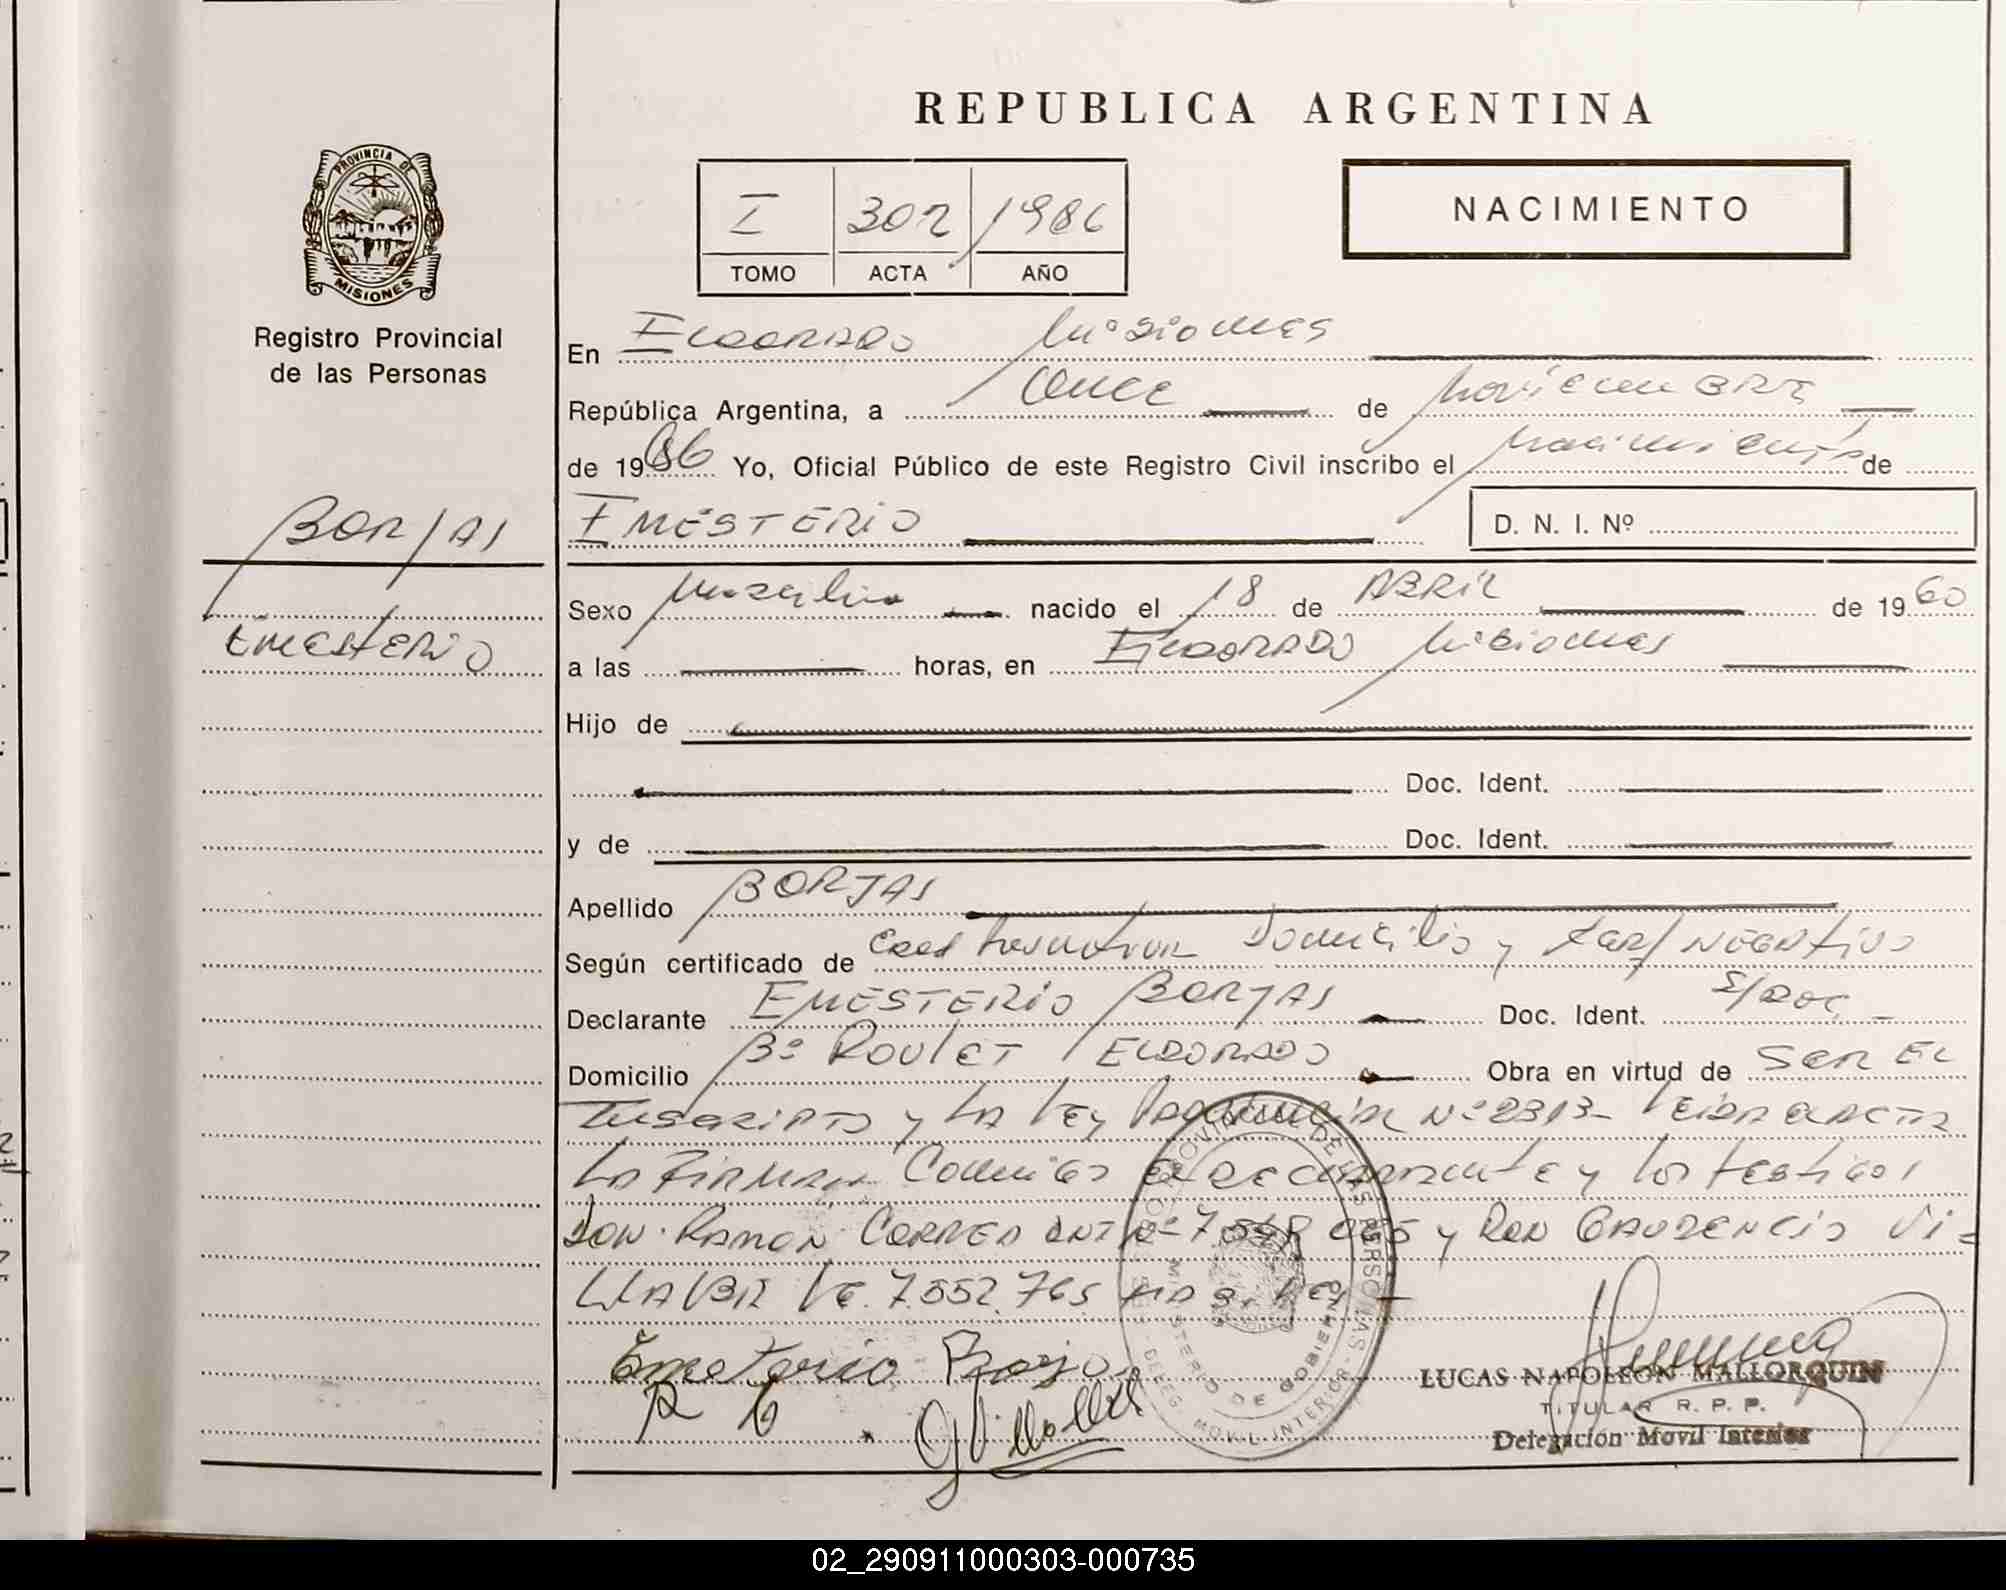 REPUBLICA ARGENTINA
PROVINCIA DE
MISIONES
Registro Provincial
de las Personas
I 302 1986
TOMO ACTA AÑO
NACIMIENTO
En Eldorado Misiones
República Argentina, a Once de Noviembre
de 1986 Yo, Oficial Público de este Registro Civil inscribo el nacimiento de
BORJAS
EMESTERIO
D. N. I. Nº
Sexo Masculino nacido el 18 de ABRIL de 1960
Emesterio
a las horas, en Eldorado Misiones
Hijo de
Doc. Ident.
y de Doc. Ident.
Apellido BORJAS
Según certificado de Domicilio y negativo
Declarante EMESTERIO BORJAS Doc. Ident. S/Doc
Domicilio Bº Roulet Eldorado Obra en virtud de Ser El
Inscripto y La Ley Provincial Nº 2313- Leida el acta
La Firman Conmigo el declarante y los testigos
Don Ramon Correa DNI Nº y Don Gaudencio Vi-
llalba 7.552.765
Emeterio
LUCAS NAPOLEON MALLORQUIN
TITULAR R. P. P.
Delegación Movil Interior
02_290911000303-000735